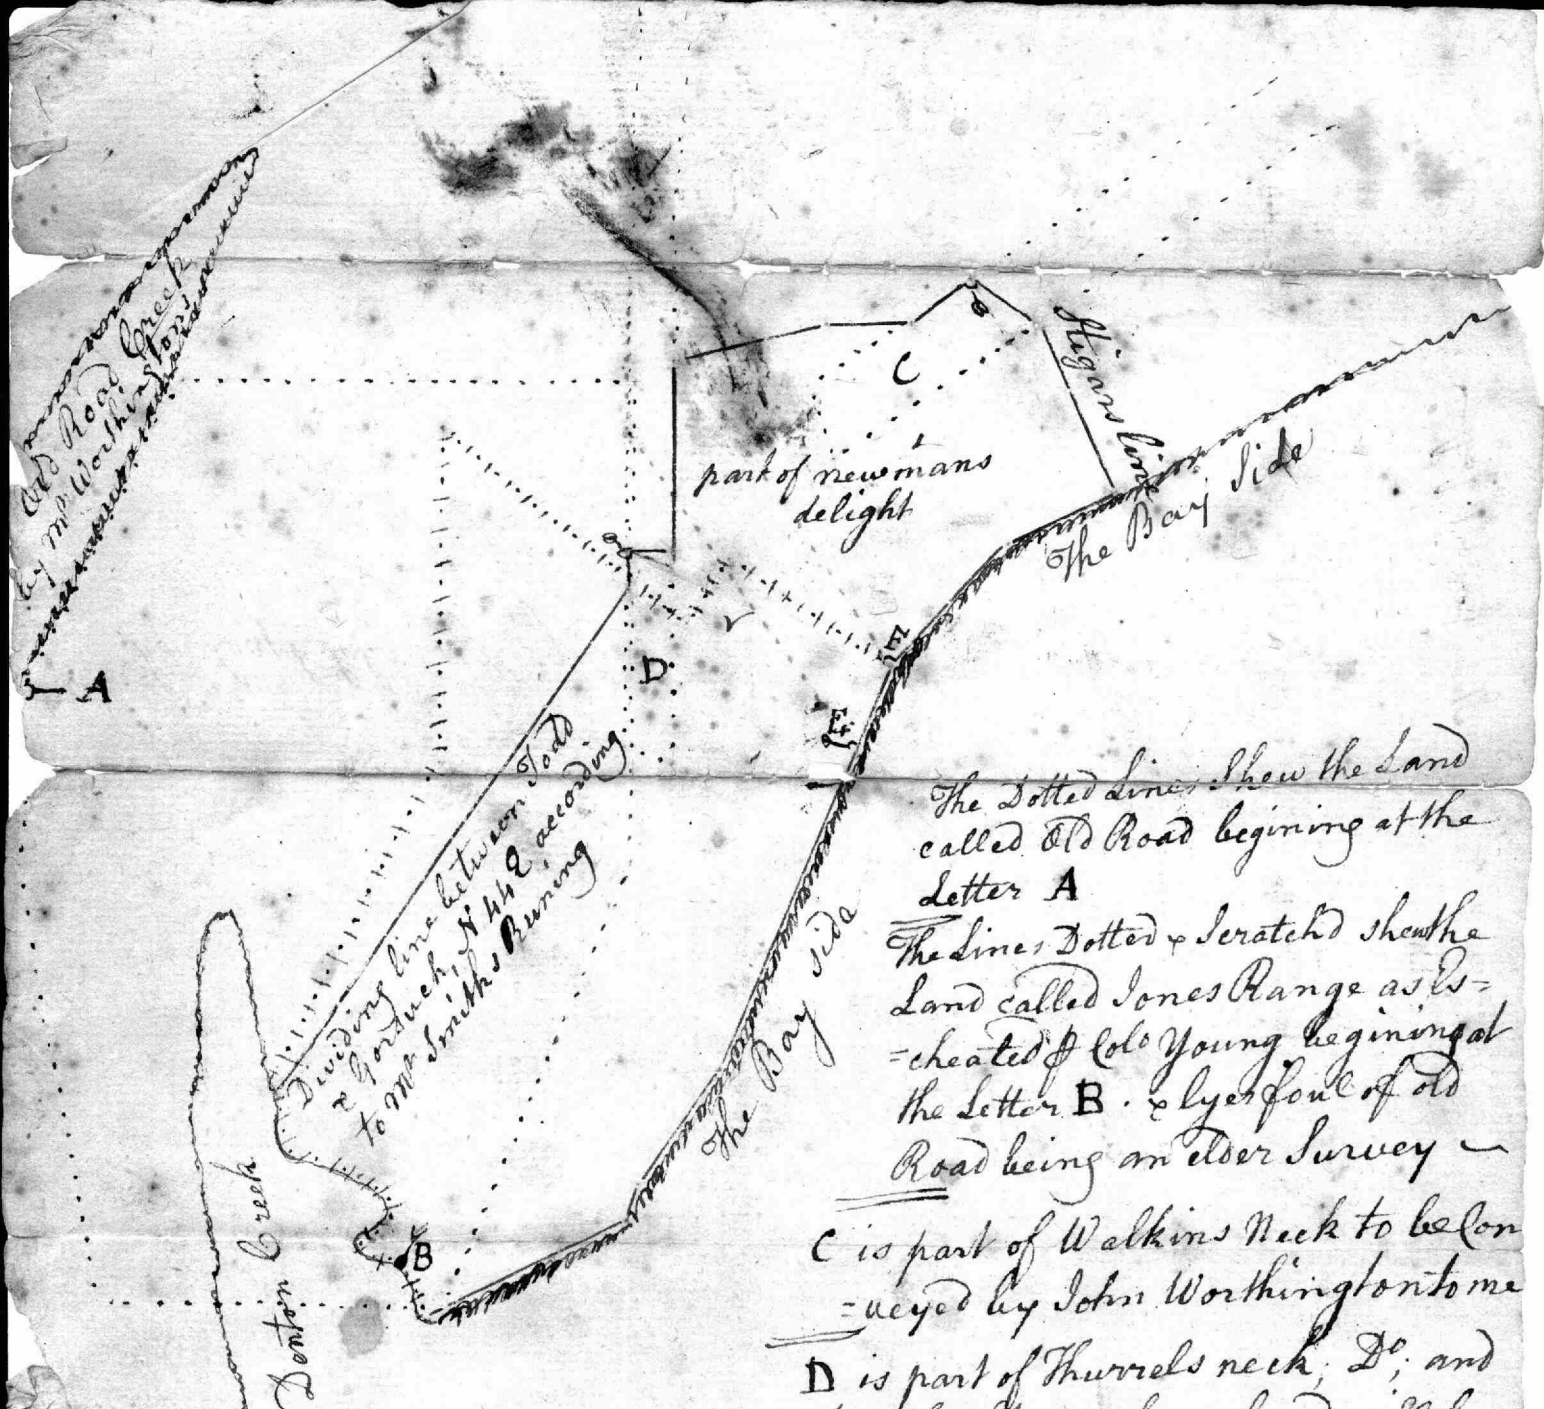 Old Road Creek
by Mr Worthingtons
A
C
Higars line
part of newmans
delight
The Bay Side
D
E
E
Dividing line between Todd
& Gorsuch, N 44 E according
to Mr Smiths Runing
The Bay side
B
Denton Creek
The Dotted Lines Shew the Land
called Old Road begining at the
Letter A
The Lines Dotted & Scratch'd shew the
Land called Jones Range as Es=
=cheated ⅌ Colo Young begining at
the Letter B . & lyes foul of old
Road being an elder Survey
C is part of Walkins Neck to be Con
=veyed by John Worthington to me
D is part of Thurrels neck; Do; and